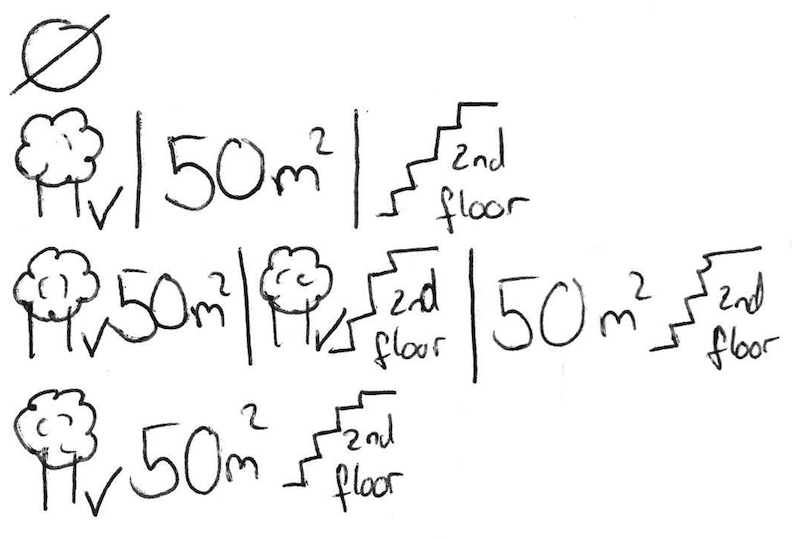 ∅
✓ | 50m² | 2nd floor
✓ 50m² | ✓ 2nd floor | 50m² 2nd floor
✓ 50m² 2nd floor